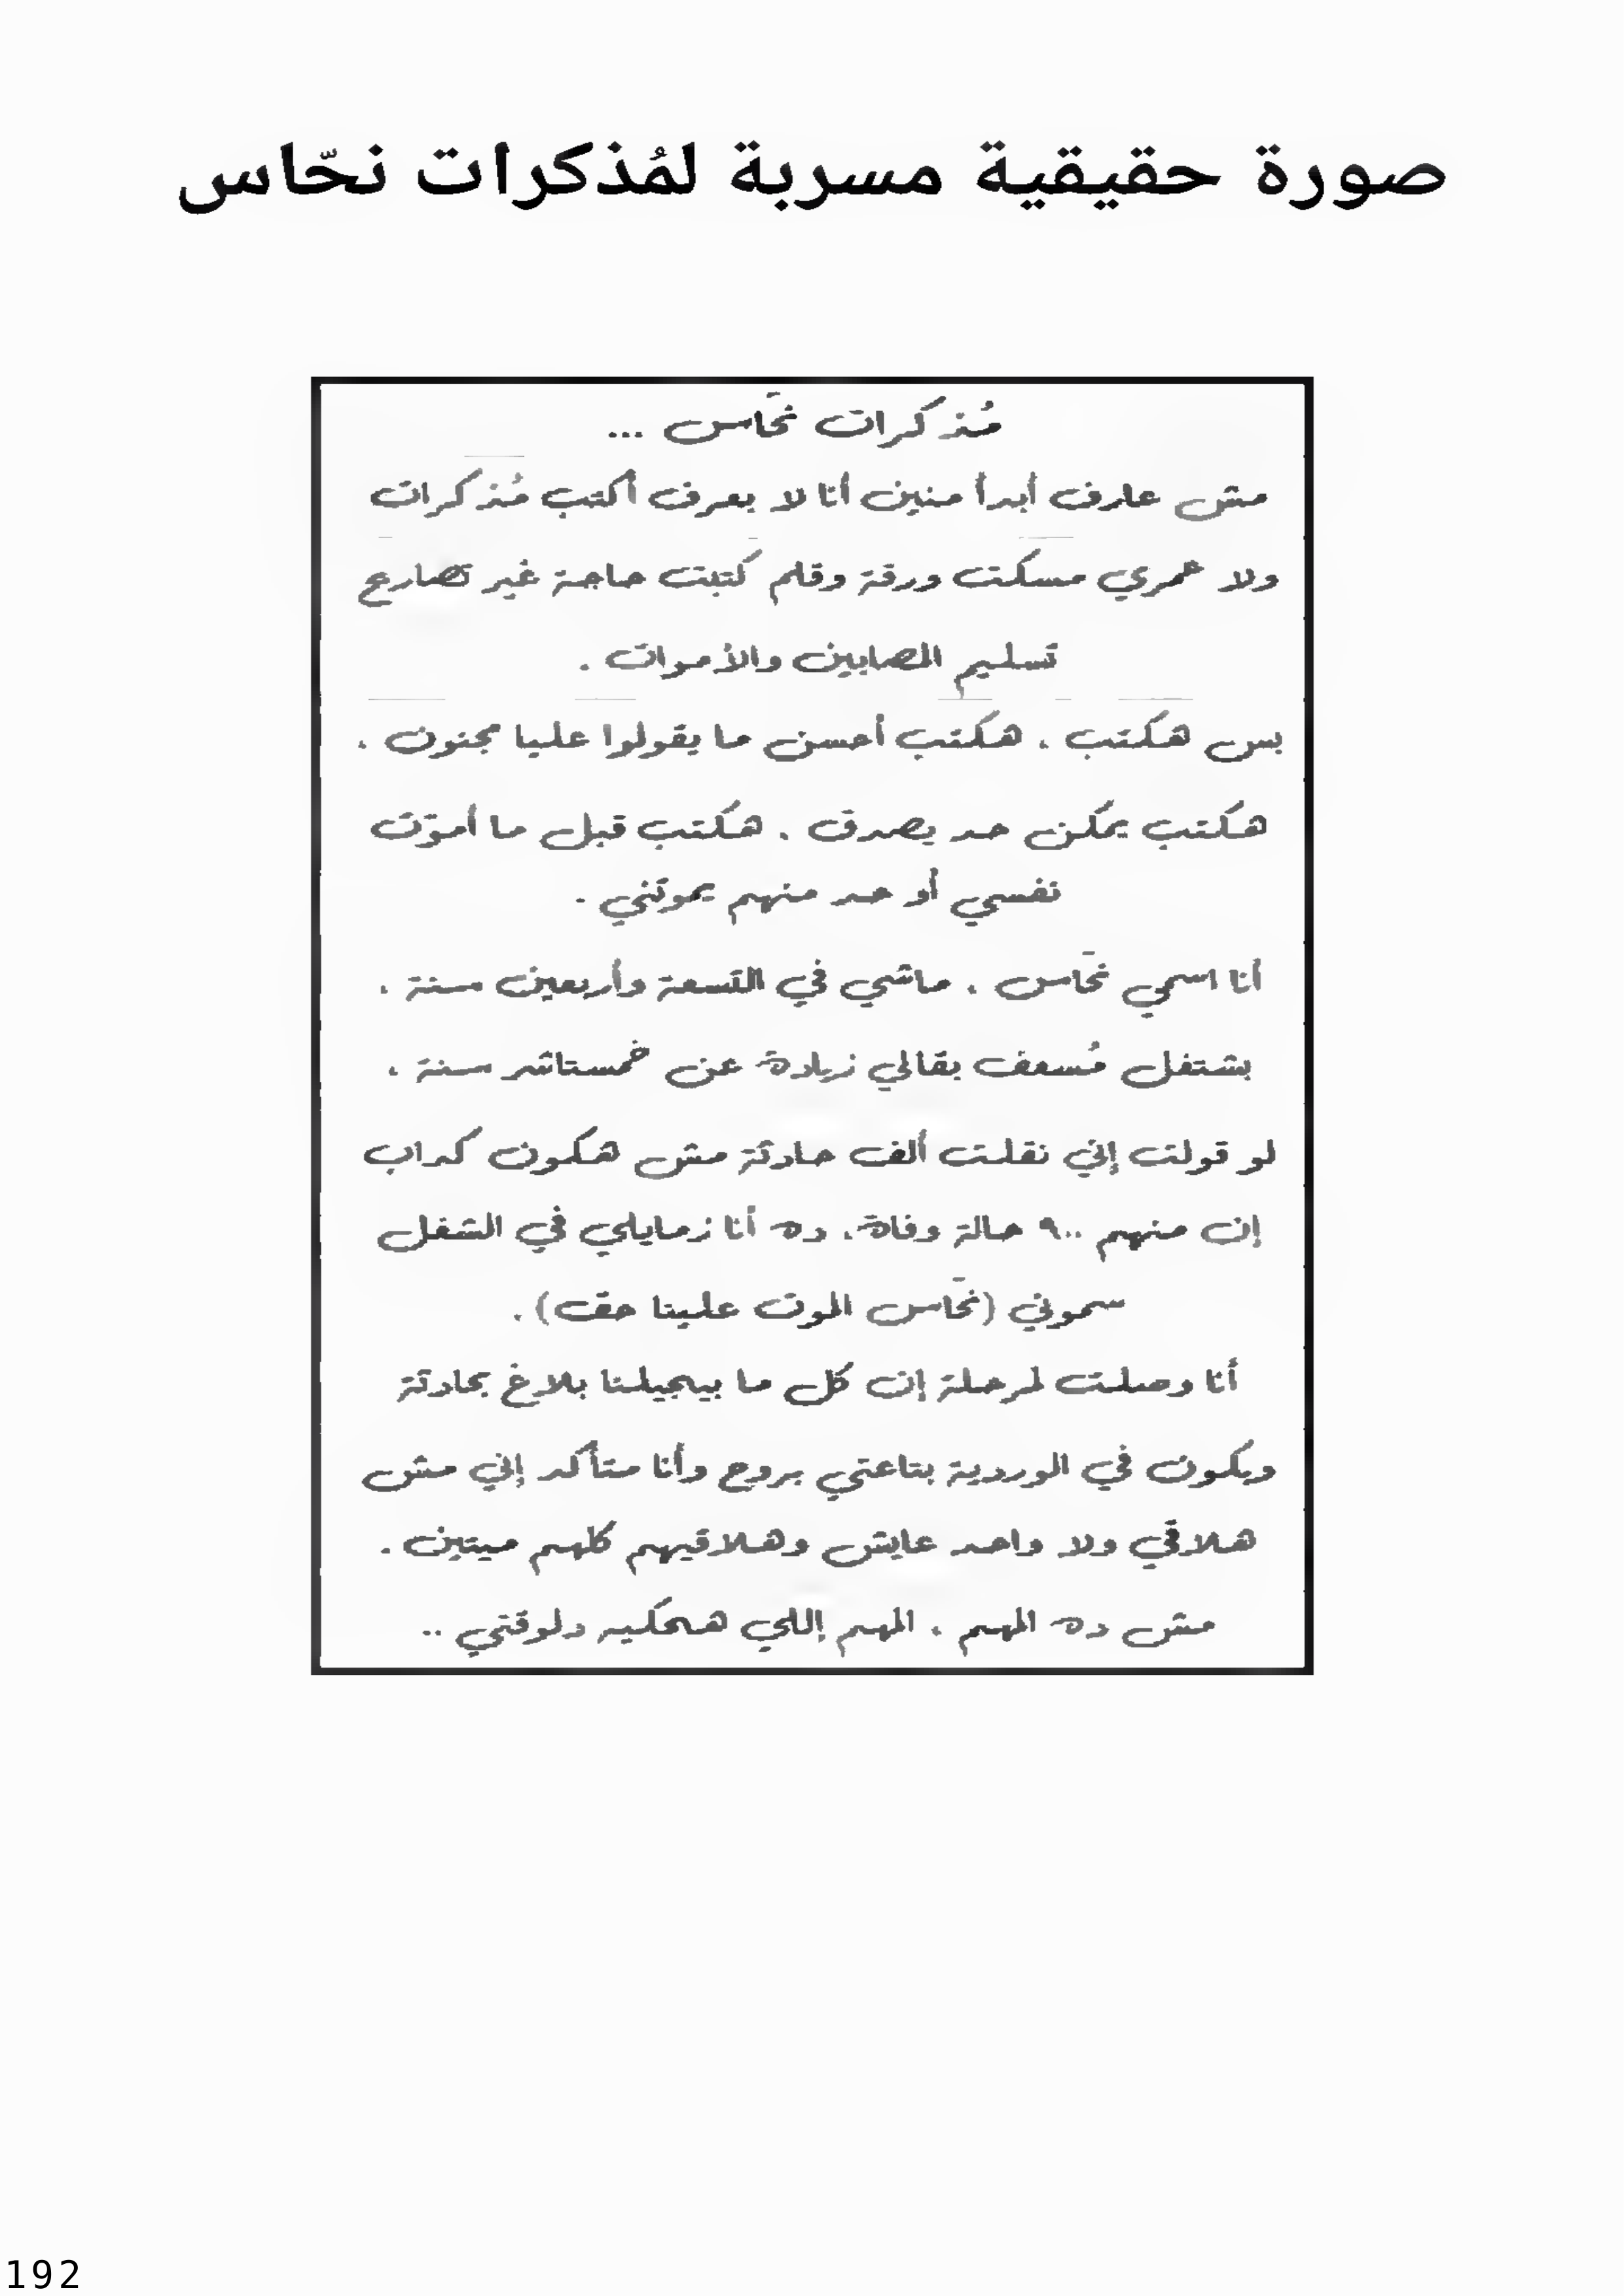 صورة حقيقية مسربة لمُذكرات نحّاس
مُذكرات نحّاس ...
مش عارف أبدأ منين أنا لا بعرف أكتب مُذكرات
ولا عمري مسكت ورقة وقلم كتبت حاجة غير تصاريح
تسليم المصابين والأموات .
بس هكتب . هكتب أحسن ما يقولوا عليا مجنون .
هكتب يمكن حد يصدق . هكتب قبل ما أموّت
نفسي أو حد منهم يموتني .
أنا اسمي نحّاس . ماشي في التسعة وأربعين سنة .
بشتغل مُسعف بقالي زيادة عن خمستاشر سنة .
لو قولت إني نقلت ألف حادثة مش هكون كداب
إن منهم ٩٠٠ حالة وفاة . ده أنا زمايلي في الشغل
سموني (نحّاس الموت علينا حق) .
أنا وصلت لمرحلة إن كل ما بيجيلنا بلاغ بحادثة
ويكون في الوردية بتاعتي بروح وأنا متأكد إني مش
هلاقي ولا واحد عايش وهلاقيهم كلهم ميتين .
مش ده المهم . المهم إللي هحكيه دلوقتي ..
192